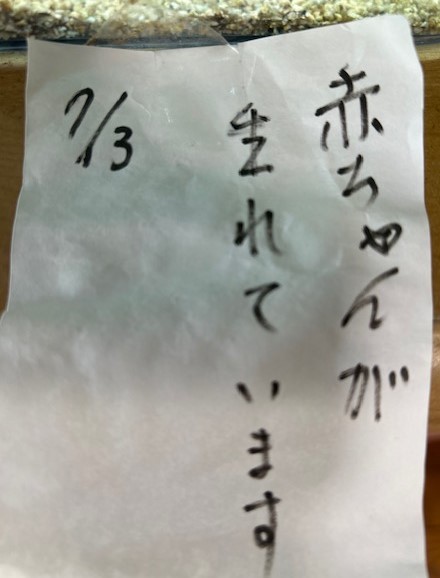 赤ちゃんが
生れています
7/3